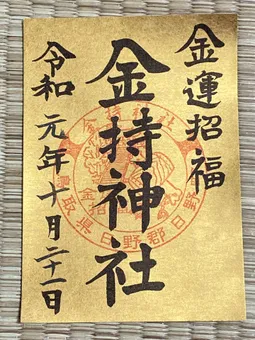 金運招福
金持神社
令和元年十月二十一日
鳥取県日野郡日野